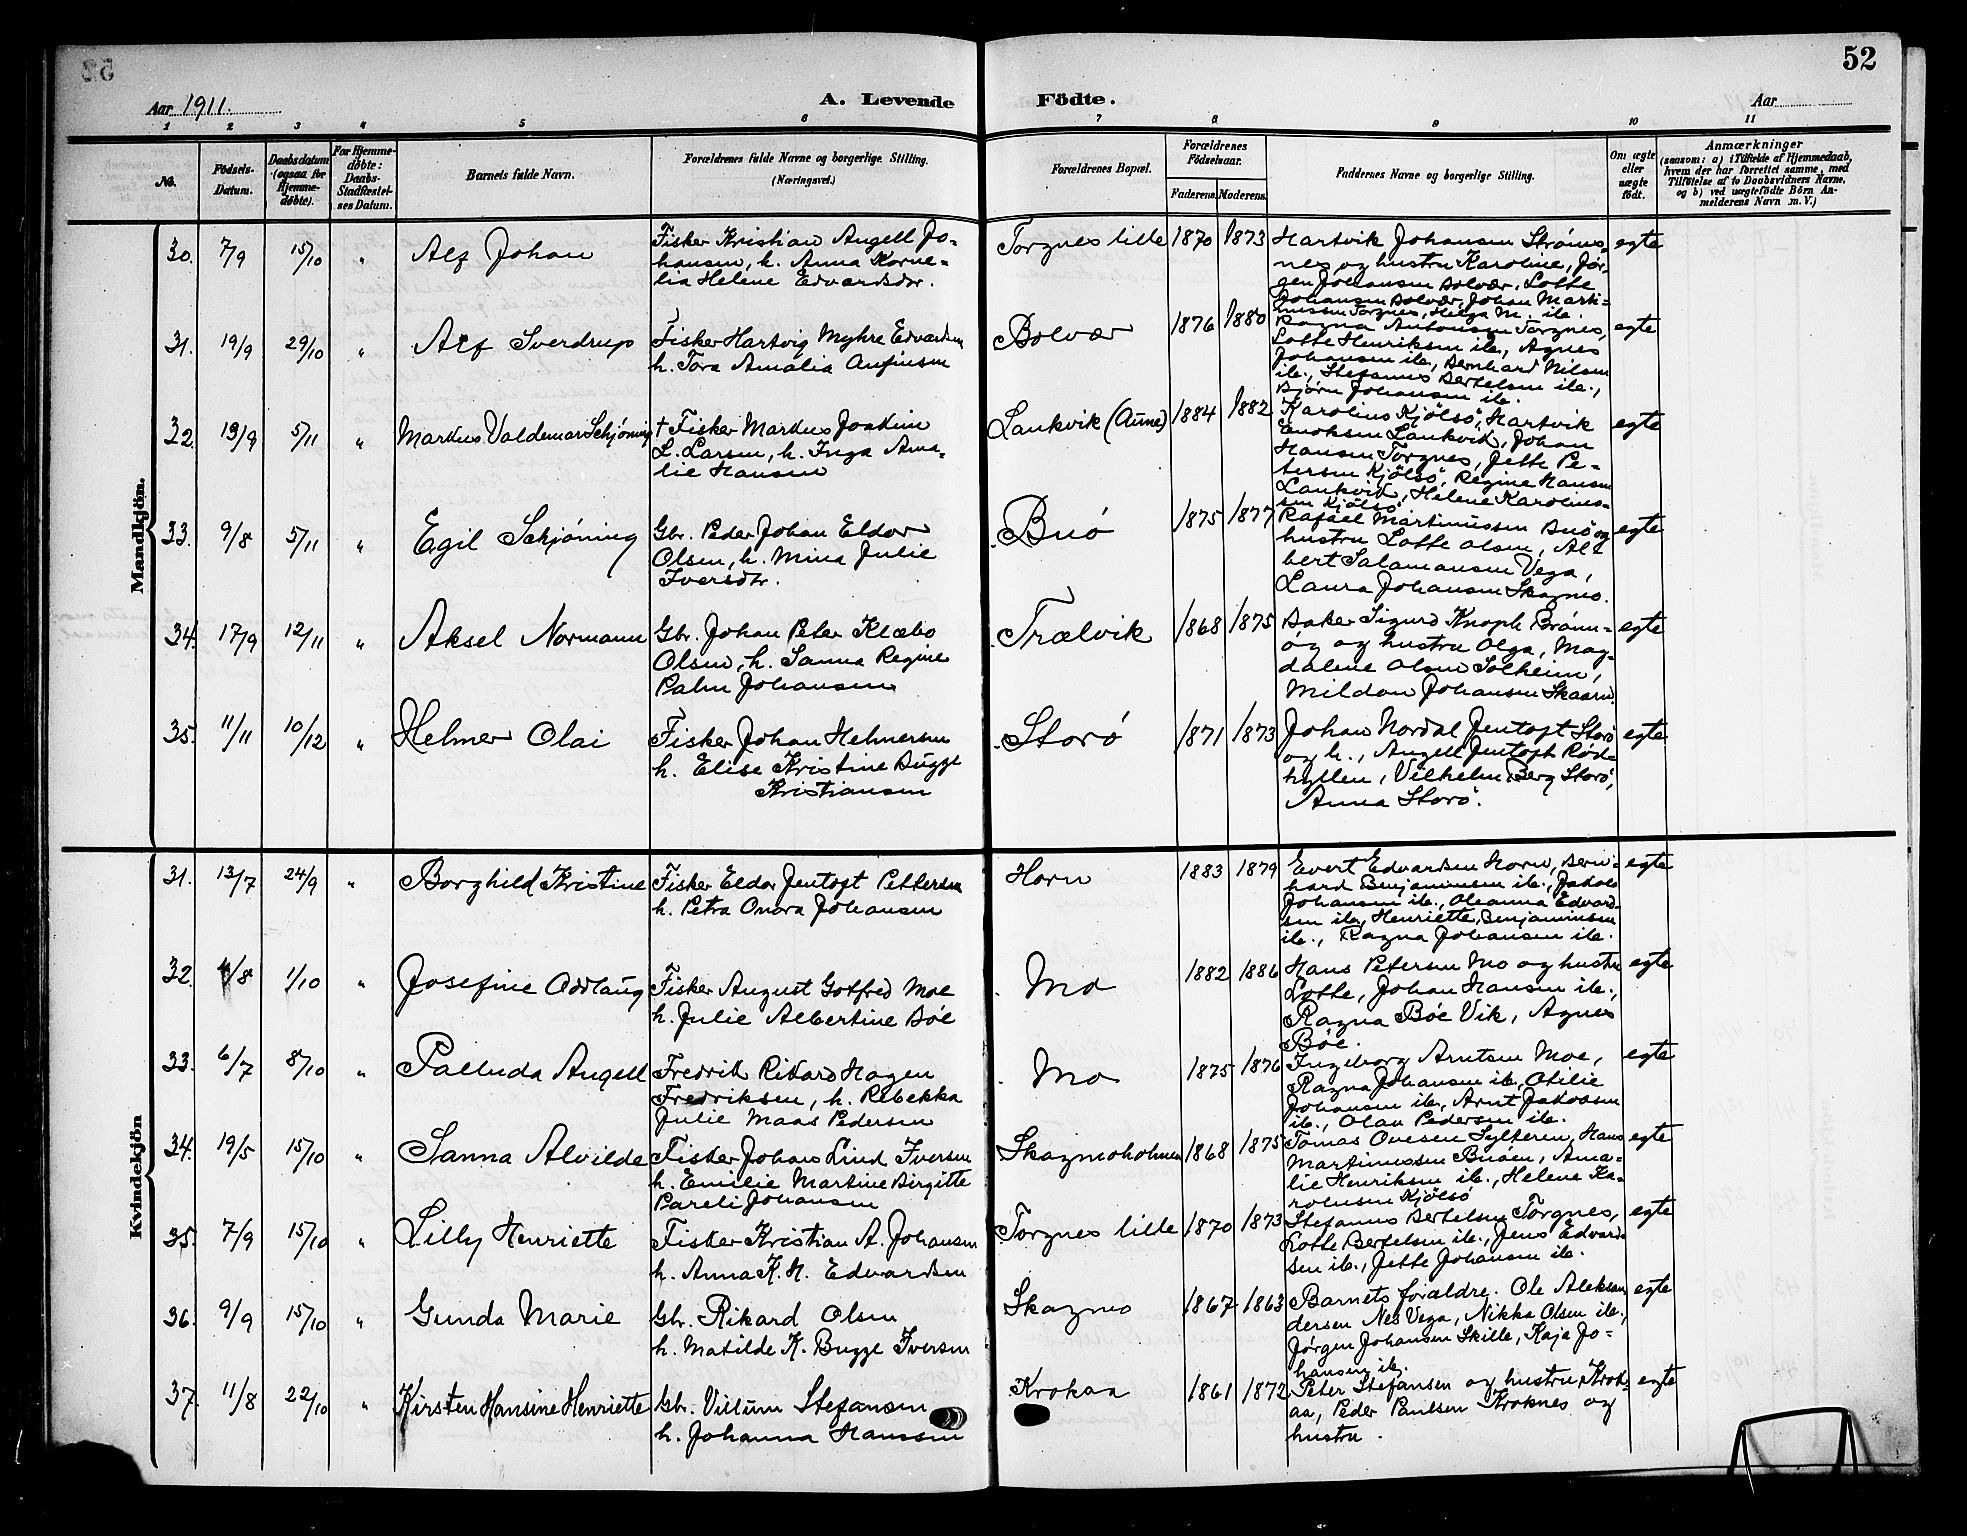 52
Aar 1911.
A. Levende Födte.
Aar
1 2 3 4 5 6 7 8 9 10 11
No.
Födsels-Datum.
Daabsdatum (ogsaa for Hjemme-döbte).
For Hjemme-döbte: Daabs-Stadfæstel-ses Datum.
Barnets fulde Navn.
Forældrenes fulde Navne og borgerlige Stilling. (Næringsvei.)
Forældrenes Bopæl.
Forældrenes Födselsaar.
Faderens. Moderens.
Faddernes Navne og borgerlige Stilling.
Om ægte eller uægte födt.
Anmærkninger
(saasom: a) i Tilfælde af Hjemmedaab, hvem der har forrettet samme, med Tilföielse af to Daabsvidners Navne, og b) ved uægtefödte Börn An-melderens Navn m. V.)
Mandkjön.
30. 7/9 15/10 " Alf Johan
Fisker Kristian Angell Jo-
hansen, h. Anna Korne-
lia Helene Edvardsdr.
Torgnes lille 1870 1873
Hartvik Johansen Strøms-
nes og hustru Karoline, Jør-
gen Johansen Bolvær, Lotte
Johansen Bolvær, Johan Marti-
nussen Torgnes, Helga M. ib.
egte
31. 19/9 29/10 " Alf Sverdrup
Fisker Hartvig Myhre Edvardsen
h. Tora Amalia Anfinsen
Bolvær 1876 1880
Ragna Antonsen Torgnes,
Lotte Henriksen ib., Agnes
Johansen ib., Bernhard Nilsen
ib., Stefanus Bertelsen ib.,
Bjørn Johansen ib.
egte
32. 19/9 5/11 " Markus Valdemar Schjøning
+ Fisker Markus Joakim
L. Larsen, h. Inga Ama-
lie Hansen
Lankvik (Aune) 1884 1882
Karolius Kjölsö, Hartvik
Enoksen Lankvik, Johan
Hansen Torgnes, Jette Pe-
tersen Kjölsö, Regine Hansen
Lankvik, Helene Karolius-
sen Kjölsö
egte
33. 9/8 5/11 " Egil Schjøning
Gbr. Peder Johan Eldor
Olsen, h. Mina Julie
Iversdtr.
Buö 1875 1877
Rafael Martinussen Buö og
hustru Lotte Olsen, Al-
bert Salamonsen Vega,
Laura Johansen Skagmo.
egte
34. 17/9 12/11 " Aksel Normann
Gbr. Johan Peter Klæbo
Olsen, h. Sanna Regine
Palm Johansen
Trælvik 1868 1875
Baker Sigurd Knoph Brønn-
øy og hustru Olga, Mag-
dalene Olsen Solheim,
Mildan Johansen Skaarn.
egte
35. 11/11 10/12 " Helmer Olai
Fisker Johan Helmersen
h. Elise Kristine Bugge
Kristiansen
Storö 1871 1873
Johan Nordal Jentoft Storö
og h., Angell Jentoft Röd-
hyllen, Vilhelm Berg Storö,
Anna Storö.
egte
Kvindekjön
31. 13/7 24/9 " Borghild Kristine
Fisker Eldor Jentoft Pettersen
h. Petra Onora Johansen
Horn 1883 1879
Evert Edvardsen Horn, Bern-
hard Benjaminsen ib., Jakob
Johansen ib., Oleanna Edvard-
sen ib., Henriette Benjaminsen
ib., Ragna Johansen ib.
egte
32. 4/8 1/10 " Josefine Oddlaug
Fisker August Gotfred Moe
h. Julie Albertine Böe
Mo 1882 1886
Hans Petersen Mo og hustru
Lotte, Johan Hansen ib.,
Ragna Böe Vik, Agnes
Böe.
egte
33. 6/7 8/10 " Palluda Angell
Fredrik Rikard Hagen
Fredriksen, h. Rebekka
Julie Maas Pedersen
Mo 1875 1876
Ingeborg Arntsen Moe,
Ragna Johansen ib., Otilie
Johansen ib., Arnt Jakobsen
ib., Olav Pedersen ib.
egte
34. 19/5 15/10 " Sanna Alvilde
Fisker Johan Lind Iversen
h. Emilie Martine Birgitte
Pareli Johansen
Skagmoholmen 1868 1875
Tomas Ovesen Sylteren, Hans
Martinussen Buöen, Ama-
lie Henriksen ib., Helene Ka-
rolusen Kjölsö
egte
35. 7/9 15/10 " Lilly Henriette
Fisker Kristian A. Johansen
h. Anna K. H. Edvardsen
Torgnes lille 1870 1873
Stefanus Bertelsen Torgnes,
Lotte Bertelsen ib., Jens Edvard-
sen ib., Jette Johansen ib.
egte
36. 9/9 15/10 " Gunda Marie
Gbr. Rikard Olsen
h. Matilde K. Bugge Iversen
Skagmo 1867 1863
Barnets forældre. Ole Aleksan-
dersen Nes Vega, Nikka Olsen ib.,
Jørgen Johansen Skille, Kaja Jo-
hansen ib.
egte
37. 11/8 22/10 " Kirsten Hansine Henriette
Gbr. Villum Stefansen
h. Johanna Hanssen
Krokaa 1861 1872
Peter Stefansen og hustru Krok-
aa, Peder Paulsen Kroknes og
hustru.
egte